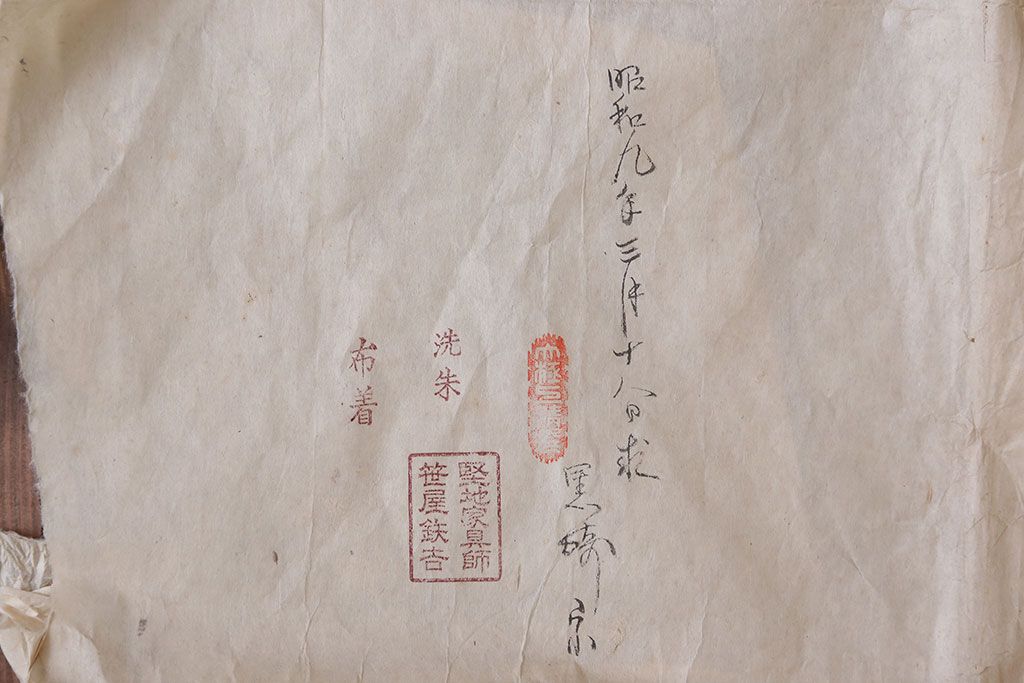 昭和九年三月十八日求
黒崎家
洗朱
布着
堅地家具師
笹屋鉄吉